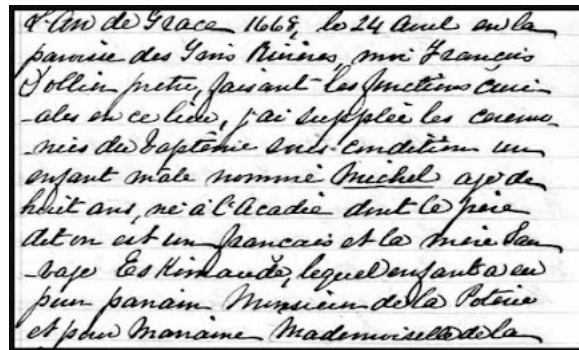 L'An de Grace 1668, le 24 Avril en la
paroisse des Trois Rivières, moi François
Dollier pretre, faisant les fonctions curi-
-ales en ce lieu, j'ai supplée les cérémo-
-nies du baptême sous-condition un
enfant mâle nommé Michel age de
huit ans, né à l'Acadie dont le père
dit on est un français et la mère Sau-
-vage Eskimaude, lequel enfant a eu
pour parrain Monsieur de la Poterie
et pour Marraine Mademoiselle de la